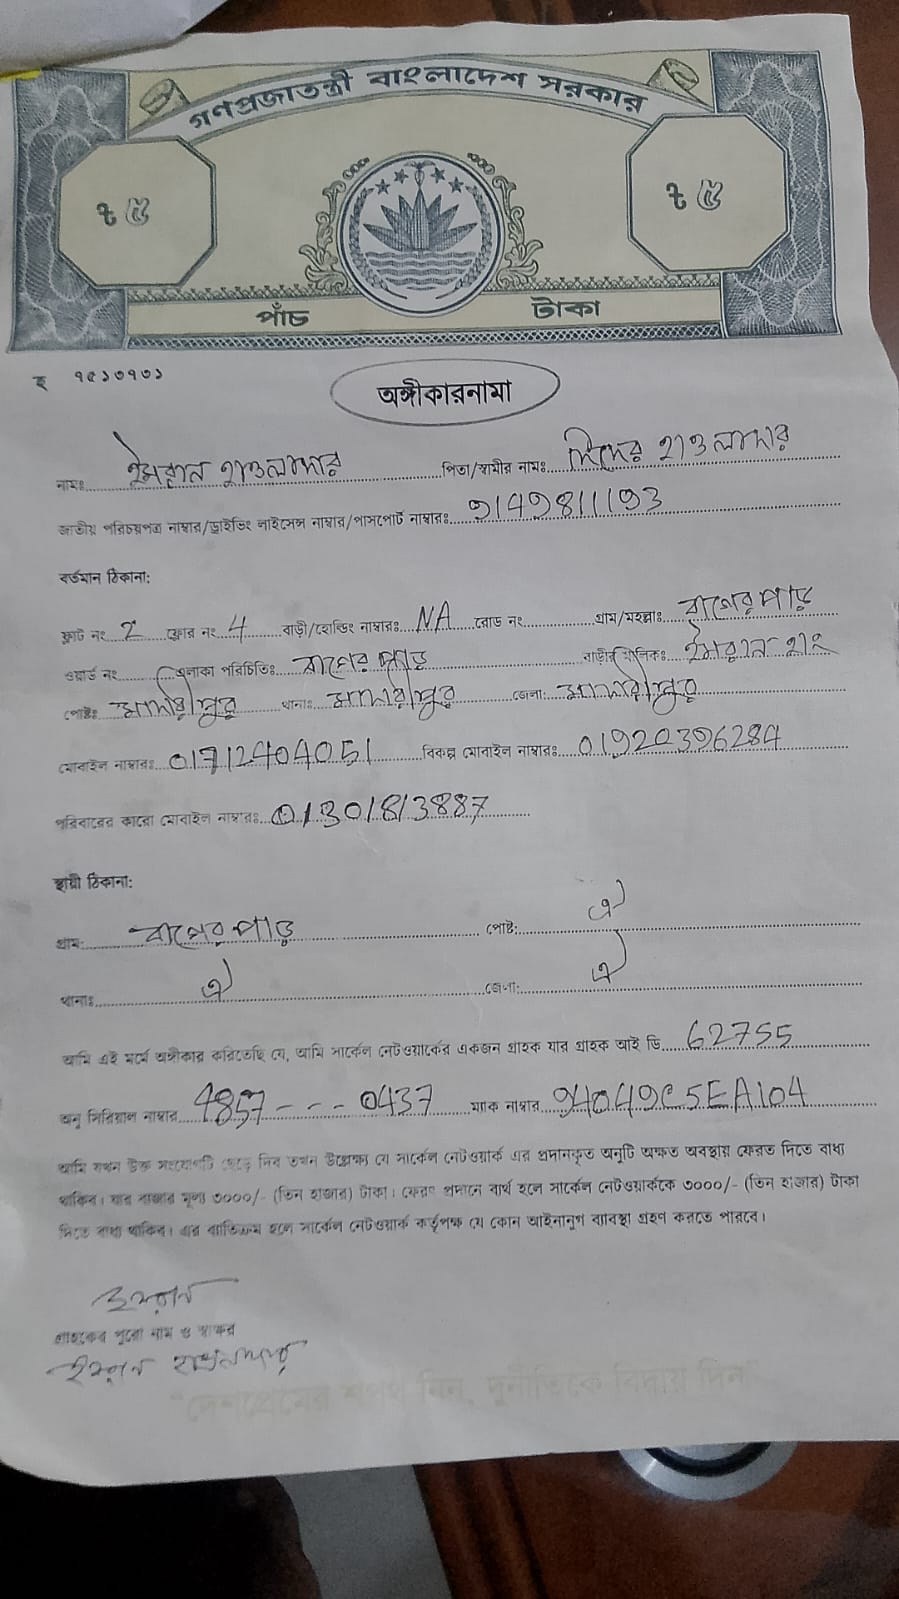 গণপ্রজাতন্ত্রী বাংলাদেশ সরকার
৳ ৫ ৳ ৫
পাঁচ টাকা
৭৫১৩৭৩১
অঙ্গীকারনামা
নামঃ ইমরান হাওলাদার পিতা/স্বামীর নামঃ হাওলাদার
জাতীয় পরিচয়পত্র নাম্বার/ড্রাইভিং লাইসেন্স নাম্বার/পাসপোর্ট নাম্বারঃ
বর্তমান ঠিকানা:
ফ্লাট নং 2 ফ্লোর নং 4 বাড়ী/হোল্ডিং নাম্বারঃ NA রোড নং গ্রাম/মহল্লাঃ
ওয়ার্ড নং এলাকা পরিচিতিঃ বাড়ীর মালিকঃ ইমরান হাং
পোষ্টঃ মাদারীপুর থানাঃ মাদারীপুর জেলা: মাদারীপুর
মোবাইল নাম্বারঃ 01712404051 বিকল্প মোবাইল নাম্বারঃ 01920396284
পরিবারের কারো মোবাইল নাম্বারঃ 01301813887
স্থায়ী ঠিকানা:
গ্রাম: পোষ্ট: ঐ
থানাঃ ঐ জেলা: ঐ
আমি এই মর্মে অঙ্গীকার করিতেছি যে, আমি সার্কেল নেটওয়ার্কের একজন গ্রাহক যার গ্রাহক আই ডি 62755
অনু সিরিয়াল নাম্বার 4857--- 0437 ম্যাক নাম্বার 94049C5EA104
আমি যখন উক্ত সংযোগটি ছেড়ে দিব তখন উল্লেক্ষ্য যে সার্কেল নেটওয়ার্ক এর প্রদানকৃত অনুটি অক্ষত অবস্থায় ফেরত দিতে বাধ্য
থাকিব। যার বাজার মূল্য ৩০০০/- (তিন হাজার) টাকা। ফেরৎ প্রদানে ব্যর্থ হলে সার্কেল নেটওয়ার্ককে ৩০০০/- (তিন হাজার) টাকা
দিতে বাধ্য থাকিব। এর ব্যতিক্রম হলে সার্কেল নেটওয়ার্ক কর্তৃপক্ষ যে কোন আইনানুগ ব্যাবস্থা গ্রহণ করতে পারবে।
ইমরান
গ্রাহকের পুরো নাম ও স্বাক্ষর
ইমরান হাওলাদার
"দেশপ্রেমের শপথ নিন, দুর্নীতিকে বিদায় দিন"